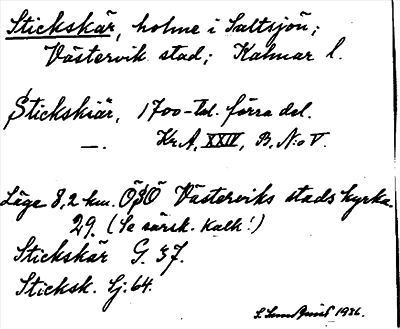 Stickskär, holme i Saltsjön;
Västervik stad; Kalmar l.
Stickskiär, 1700-tal. förra del.
—. Kr.A, XXIV, B, N:o V.
Läge 8,2 km. ÖSÖ Västerviks stads kyrka.
29. (Se särsk. kalk!)
Stickskär G. 37.
Sticksk. Sj. 64.
1936.